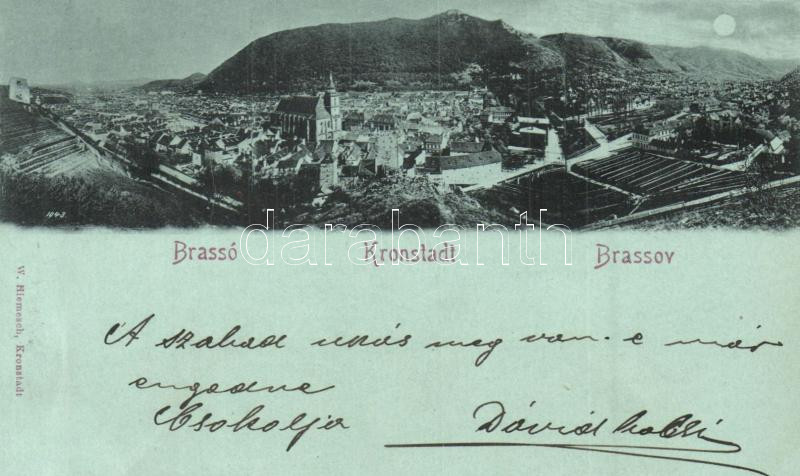 1043
darabanth
Brassó Kronstadt Brassov
W. Hiemesch, Kronstadt
A szabad meg van-e már
engedve
Csokolja Dávid